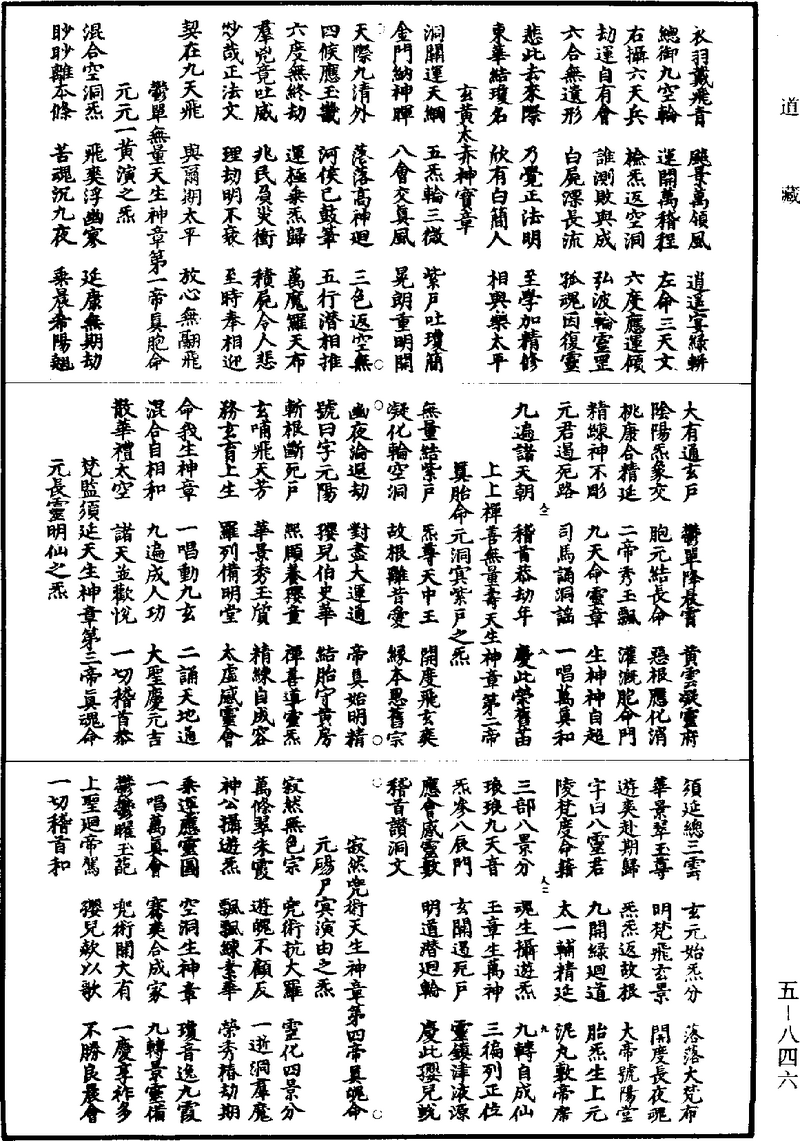 道藏
五－八四六
衣羽戴飛青　飇景萬領風　逍遥宴緑軿
總御九空輪　運開萬稽程　左命三天文
右攝六天兵　檢炁返空洞　六度應運傾
劫運自有會　誰測敗與成　弘波輪靈罡
六合無遺形　白屍漂長流　孤魂因復靈
悲此去來際　乃覺正法明　至學加精修
東華結瓊名　欣有白簡人　相與樂太平
玄黄太赤神寶章
洞開運天綱　五炁輪三微　紫戸吐瓊簡
金門納神暉　八會交真風　晃朗重明開
天際九清外　落落高神迴　三色返空無
四候應玉畿　河侯已鼓筆　五行潜相推
六度無終劫　運極乗炁歸　萬魔羅天布
羣兇竟吐威　兆民負災衝　積屍令人悲
妙哉正法文　理劫明不衰　至時奉相迎
契在九天飛　與爾期太平　放心無翮飛
鬱單無量天生神章第一帝真胞命
元元一黄演之炁
混合空洞炁　飛爽浮幽寥　延康無期劫
眇眇離本條　苦魂沉九夜　乗晨希陽翹
大有通玄戸　鬱單降晨霄　黄雲凝靈府
陰陽炁象交　胞元結長命　惡根應化消
桃康合精延　二帝秀玉飄　灌溉胞命門
精練神不彫　九天命靈章　生神神自超
元君遏死路　司馬誦洞謡　一唱萬真和
九遍諸天朝　稽首恭劫年　慶此榮舊苗
上上禪善無量壽天生神章第二帝
真胎命元洞冥紫戸之炁
無量結紫戸　炁尊天中王　開度飛玄爽
凝化輪空洞　故根離昔愛　縁本思舊宗
幽夜淪遐劫　對盡大運通　帝真始明精
號曰字元陽　瓔兒伯史華　結胎守黄房
斬根斷死戸　熙頤養瓔童　禪善導靈炁
玄哺飛天芳　華景秀玉質　精練自成容
務玄育上生　羅列備明堂　太虚感靈會
命我生神章　一唱動九玄　二誦天地通
混合自相和　九遍成人功　大聖慶元吉
散華禮太空　諸天並歡悦　一切稽首恭
梵監須延天生神章第三帝真魂命
元長靈明仙之炁
須延總三雲　玄元始炁分　落落大梵布
華景翠玉尊　明梵飛玄景　開度長夜魂
遊爽赴期歸　炁炁返故根　大帝號陽堂
字曰八靈君　九開緑迴道　胎炁生上元
陵梵度命籍　太一輔精延　泥丸敷帝席
三部八景分　魂生攝遊炁　九轉自成仙
琅琅九天音　玉章生萬神　三徧列正位
炁參八辰門　玄關遏死戸　靈鎮津液源
應會感靈數　明道潜迴輪　慶此瓔兒蛻
稽首讃洞文
寂然兠術天生神章第四帝真魄命
元碭尸冥演由之炁
寂然無色宗　兠術抗大羅　靈化四景分
萬條翠朱霞　遊魄不顧反　一逝洞羣魔
神公攝遊炁　飄飄練素華　榮秀椿劫期
乗運應靈圖　空洞生神章　瓊音逸九霞
一唱萬真會　騫爽合成家　九轉景靈備
鬱鬱曜玉葩　兠術開大有　一慶享祚多
上聖迴帝駕　瓔兒欻以歌　不勝良晨會
一切稽首和